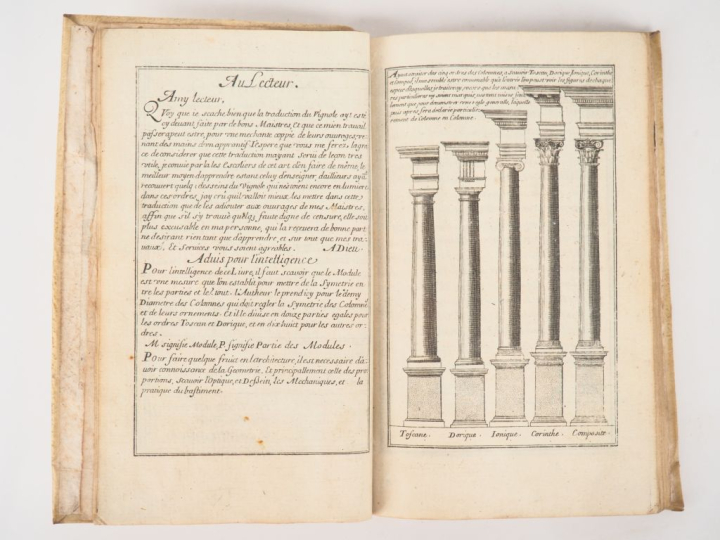 Au Lecteur.
Amy lecteur,
Quoy que ie scache bien que la traduction du Vignole ayt esté
cy devant faite par de bons Maistres, et que ce mien travail
passera peut estre, pour une mechante coppie de leurs ouvrages, ve-
nant des mains d'un apprantif. I'espere que vous me ferez la gra-
ce de considerer que cette traduction m'ayant servu de leçon tres
utile, je convie par la les Escoliers de cet art d'en faire de même, le
meilleur moyen d'apprendre estant celuy d'enseigner, d'ailleurs ayant
recouvert quelq desseins du Vignole qui n'estoient encore en lumiere
dans ces ordres, j'ay crû qu'il valloit mieux les mettre dans cette
traduction que de les adiouter aux ouvrages de mes Maistres,
affin que s'il s'y trouve quelq faute digne de censure, elle soit
plus excusable en ma personne, qui la recevra de bonne part
ne desirant rien tant que d'apprendre, et sur tout que mes tra-
vaux, et Services vous soient agreables. A Dieu
Advis pour l'intelligence
Pour l'intelligence de ce Livre, il faut scavoir que le Module
est une mesure que l'on establit pour mettre de la Symetrie en-
tre les parties et le tout. L'Autheur le prend icy pour le demy
Diametre des Colomnes qui doit regler la Symetrie des Colomnes
et de leurs ornements. Et il le divise en douze parties egales pour
les ordres Toscan et Dorique, et en dix huict pour les autres or-
dres.
M. signifie Module, P. signifie Partie des Modules.
Pour faire quelque fruict en l'architecture, il est necessaire d'a-
voir connoissance de la Geometrie, et principallement celle des pro
portions, scavoir l'Optique, et Dessein, les Mechaniques, et la
pratique du bastiment.
Ayant a traiter des cinq ordres des Colomnes, a scavoir Toscan, Dorique, Ionique, Corinthe
Toscane. Dorique. Ionique. Corinthe. Composite.